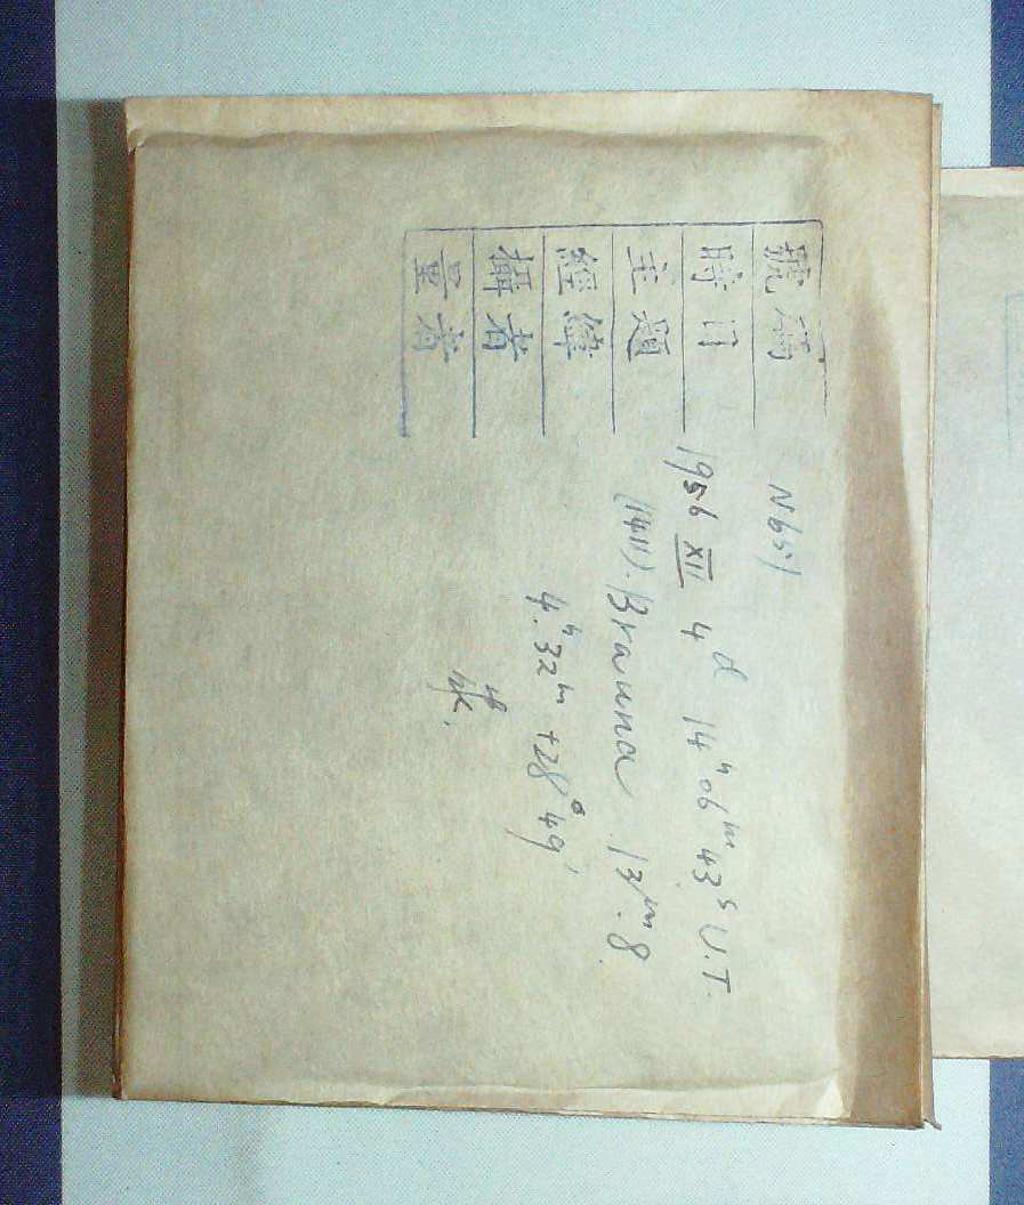 號碼 N651
時日 1956 XII 4ᵈ 14ʰ06ᵐ43ˢ U.T.
主題 (1411). Brauna 13ᵐ.8
經緯 4ʰ.32ᵐ +28°49'
攝者 張.
量者